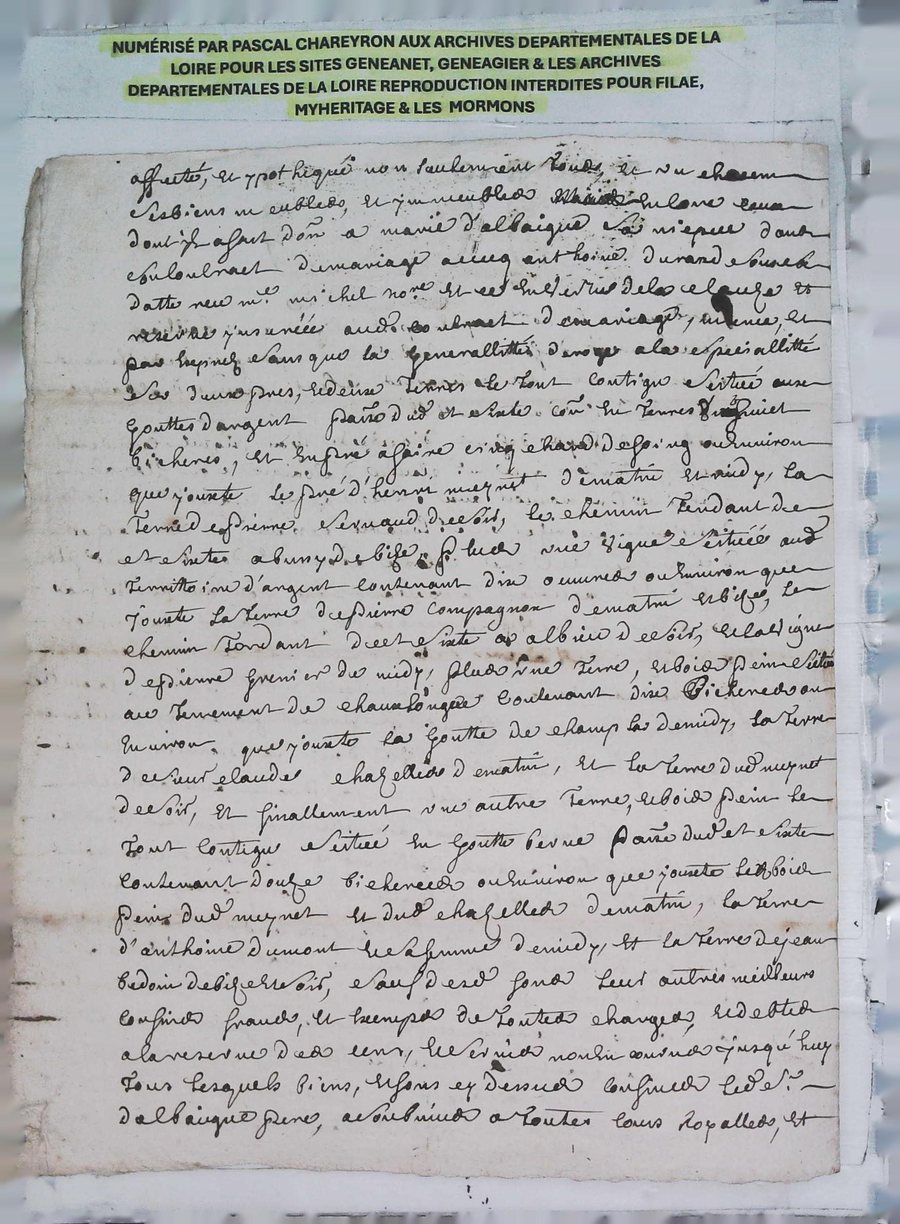 NUMÉRISÉ PAR PASCAL CHAREYRON AUX ARCHIVES DEPARTEMENTALES DE LA
LOIRE POUR LES SITES GENEANET, GENEAGIER & LES ARCHIVES
DEPARTEMENTALES DE LA LOIRE REPRODUCTION INTERDITES POUR FILAE,
MYHERITAGE & LES MORMONS
affecté, et ypothequé non seulement tous, et un chascun
ses biens meubles, et ymmeubles
dont il a faict don a marie d'albaigue sa niepce dans
son contract de mariage avecq anthoine durand
datte receu me michel nore et ce en vertu de la clauze et
reserve inserée aud contract de mariage, et
par exprez sans que la generallitté deroge a la speciallitté
deux pres, et deux terres le tout contigu situé aux
gouttes d'argent paroisse dud et sixte con en terres
bicherés, et en pré a faire cinq chard de foing ou environ
que jouxte le pré d'henri meynet de matin et midy, la
terre de pierre de soir, le chemin tendant de
st sixte a bussy de bize, plus une vigne situéé aud
territtoire d'argent contenant dix ouvrees ou environ que
jouxte la terre de pierre compagnon de matin et bize, le
chemin tendant de st sixte a albieu de soir, et la vigne
de pierre grenier de midy, plus une terre, et bois pein situé
au terrement de contenant dix bicherees ou
environ que jouxte la goutte de champ de midy, la terre
de sieur claude chazelles de matin, et la terre dud meynet
de soir, et finallement une autre terre, et bois pein le
tout contigu situé en goutte berne paroisse dud st sixte
contenant douze bicherees ou environ que jouxte le bois
pein dud meynet et dud chazelles de matin, la terre
d'anthoine dumont et sa femme de midy, et la terre de jean
bedoin de bize et soir, sauf desd fonds leurs autres meilleurs
confins francs, et exemps de toutes charges, et debtes
a la reserve des cens, et servis jusqu'huy
tous lesquels biens, et fons cy dessus confines led sr
d'albaigue pere, a soubmis a toutes cours royalles, et